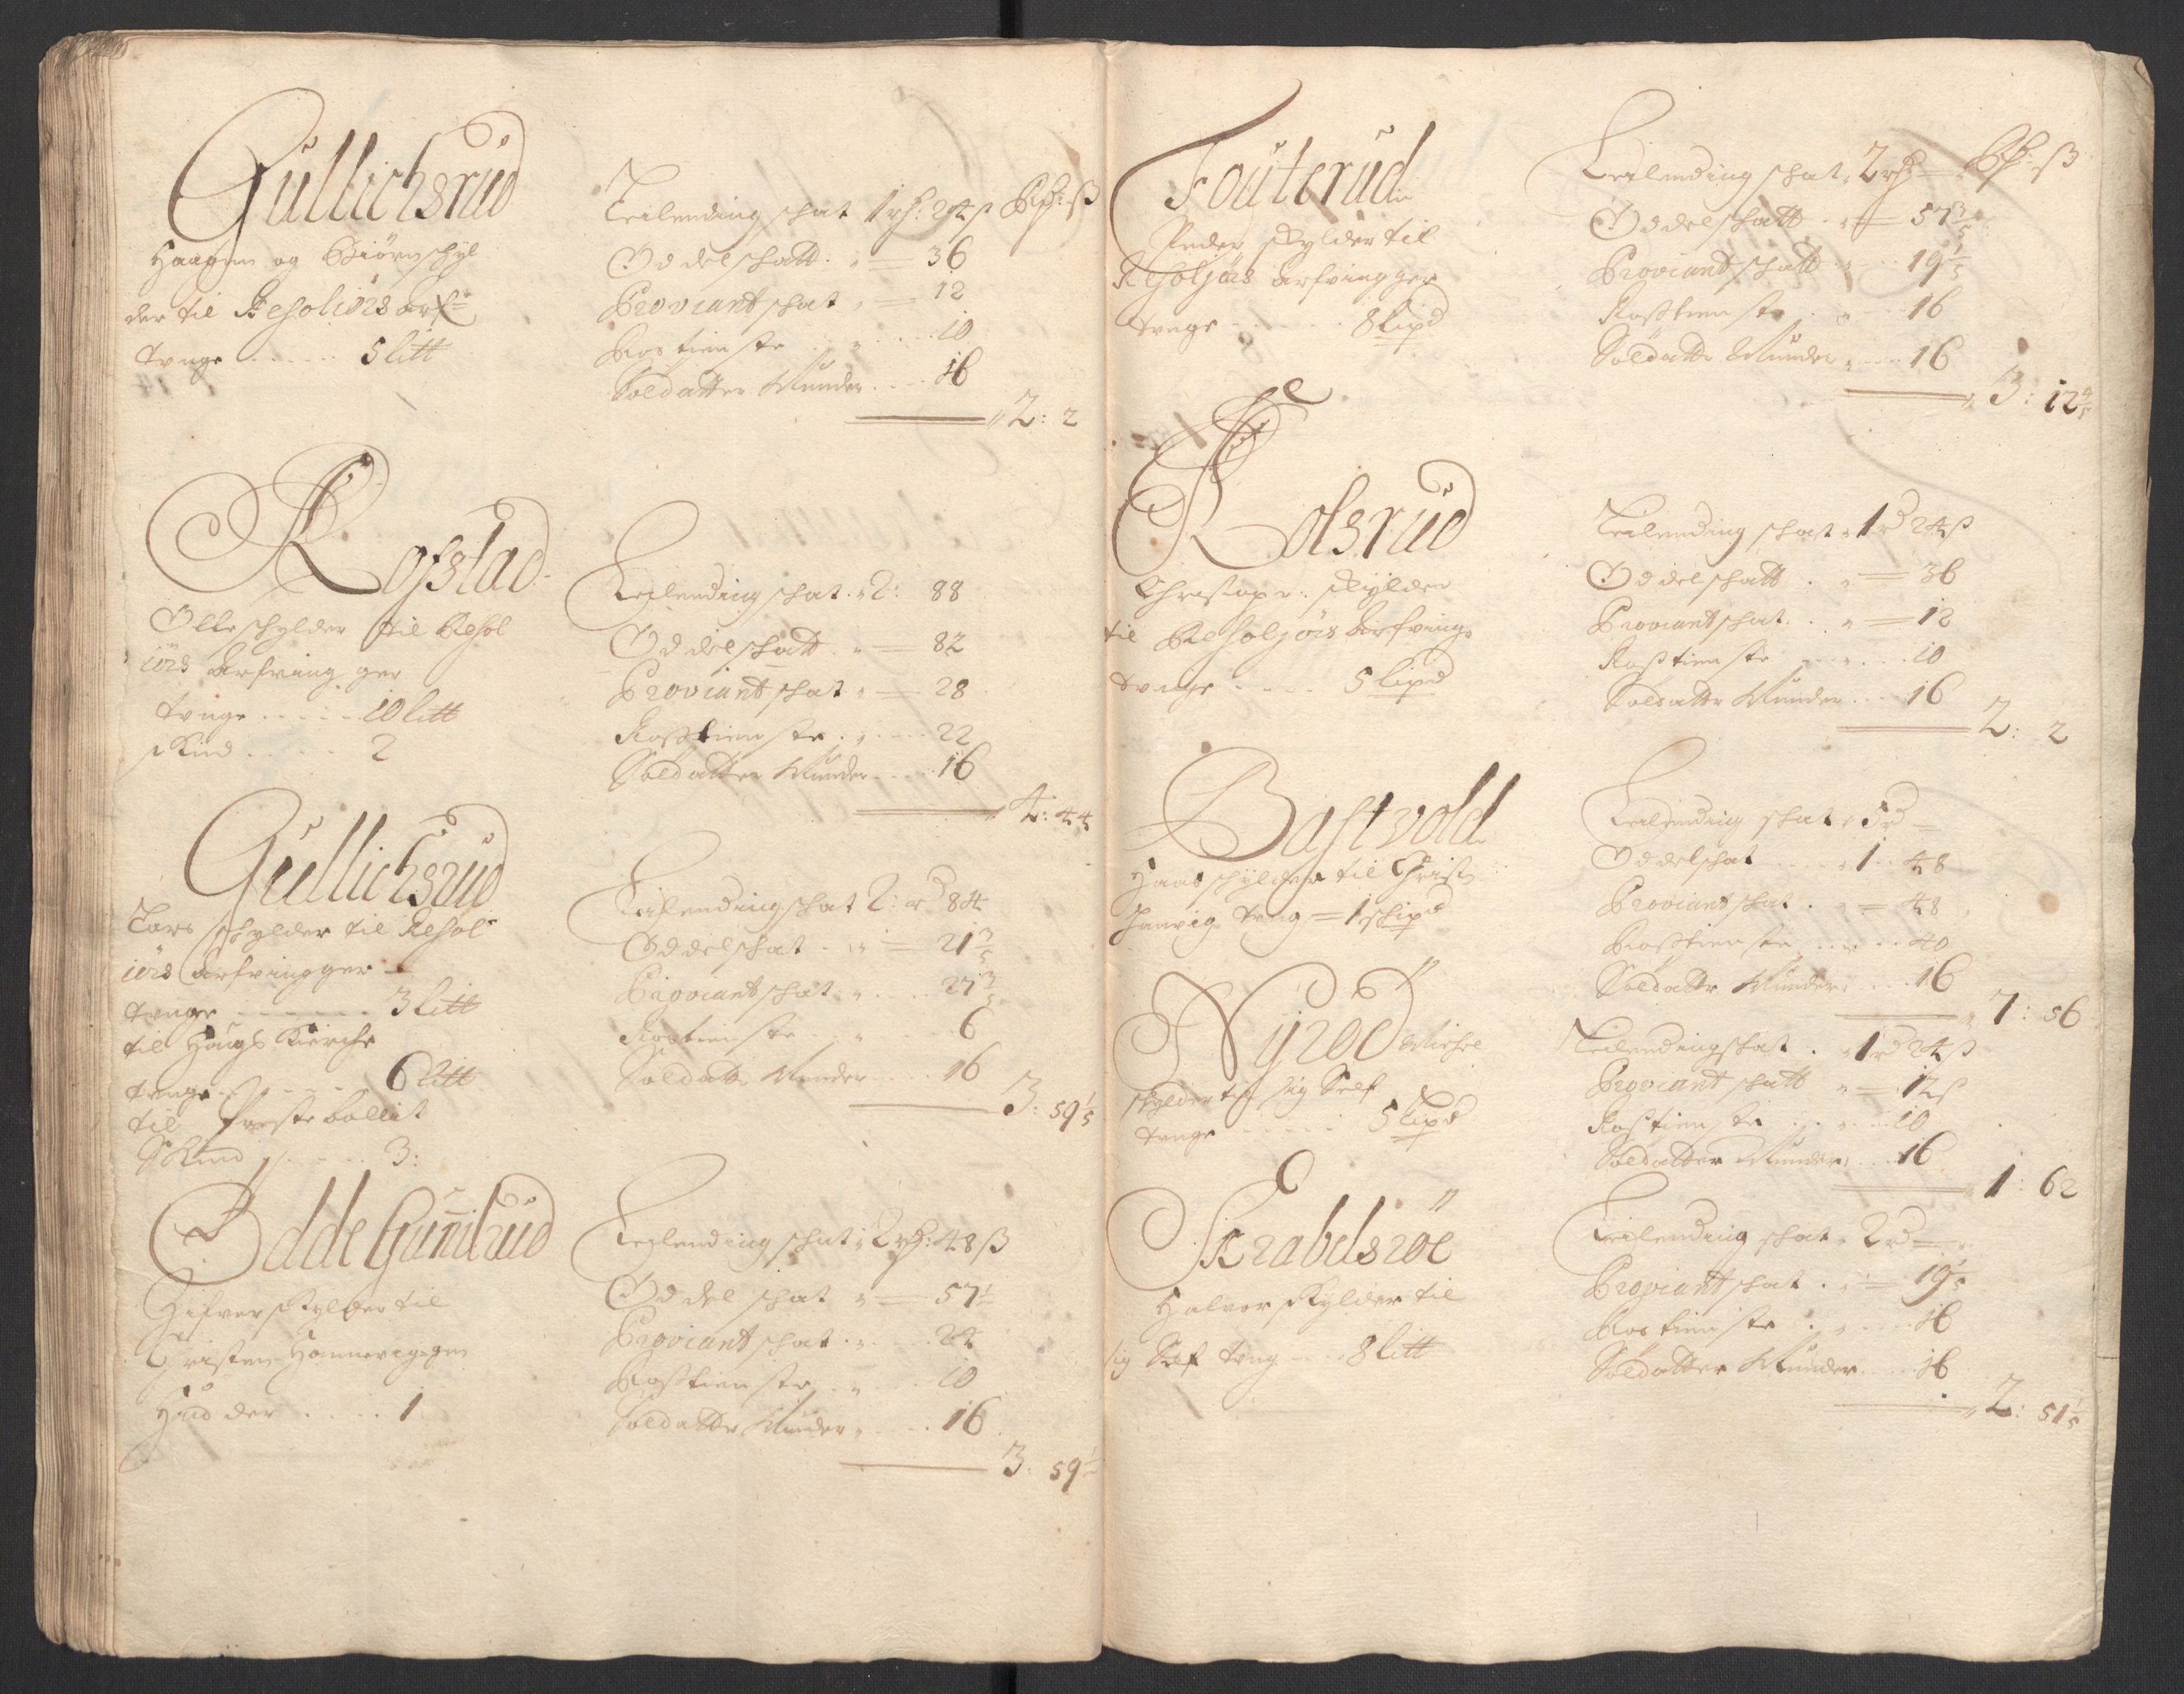 Gullichsrud
Haagen og Biörn schyl
der til Resoliörs arf=
tunge ..... 5 litt
Leilending schat 1 rd: 24 ß Rd: ß
Oddelschatt . „ = 36
Proviantschat „ = 12
Rostieniste ... „ .... 10
Soldatter Munder .... 16
„ 2: 2
Rofstad
Olle schylder til Resol
iörs Arfvingger
tunge ..... 10 litt
skind ..... 2
Leilending schat . „ 2: 88
Oddelschatt . „ = 82
Proviantschat „ = 28
Rosstieniste . „ .... 22
Soldatter Munder .... 16
4: 44
Gullichsrud
Lars schylder til Resol
iörs Arfvingger
tunge ------- 3 litt
til Hougs Kirche
tunge ----- 6 litt
til Prestebollit
Skind ..... 3:
Leilending schat 2: rd 84
Oddelschat . „ = 21 3/5
Proviantschat . „ .... 27 3/5
Rostieniste ... „ 6
Soldatter Munder .... 16
3: 59 1/5
Odde Gunnilrud
Sifver skylder til
Cristen Hanneviggen
Huder .... 1
Leilending schat „ 2 rd: 48 ß
Oddelschat „ = 57 1/
Proviantschat . „ .... 24
Rosstieniste .. „ ... 10
Soldatter Munder „ .... 16
3: 59 1/
Fouterud
Peder skylder til
Resoljörs Arfvingger
tunge ...... 8 Lispd
Leilending schat „ 2 rd = Rd: ß
Oddelschatt . „ = 57 3/5
Proviantschatt „ .... 19 1/5
Rosstieniste . „ .... 16
Soldatter Munder „ .... 16
„ 3: 12 4/5
Kolsrud
Christopr: skylder
til Resoljörs Arfving:
tunge ---- 5 Lispd
Leilending schat „ 1 rd 24 ß
Oddelschatt . „ = 36
Proviantschat . „ = 12
Rosstieniste .... 10
Soldatter Munder ... 16
2: 2
Bastvold
Haas schylder til Christ
Hanvig tung = 1 schipd
Leilending schat „ 5 rd =
Oddelschat .... „ 1 .. 48
Proviantschat . „ = 48
Rosstieniste ..... 40
Soldatter Munder .... 16
„ 7: 56
Nyröe Michel
skylder til sig Self
tunge ..... 5 Lispd
Leilendingschat . „ 1 rd 24 ß
Proviantschatt „ = 12 ß
Rosstieniste .... 10
Soldatter Munder .... 16
1: 62
Skrabelsröe
Halvor skylder til
sig Self tung --- 8 litt
Leilending schat „ 2 rd =
Proviantschat . „ = 19 1/5
Rostieniste . „ .... 16
Soldatter Munder .... 16
„ 2: 51 1/5